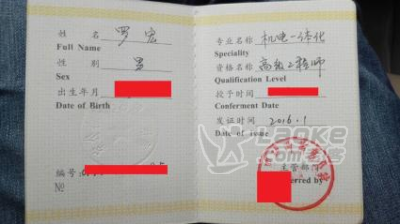 姓 名 罗宏
Full Name
性 别 男
Sex
出生年月
Date of Birth
编号
№
专业名称 机电一体化
Speciality
资格名称 高级工程师
Qualification Level
授予时间
Conferment Date
发证时间 2016.1
Date of issue
主管部门
ferred by
Laoke
.com